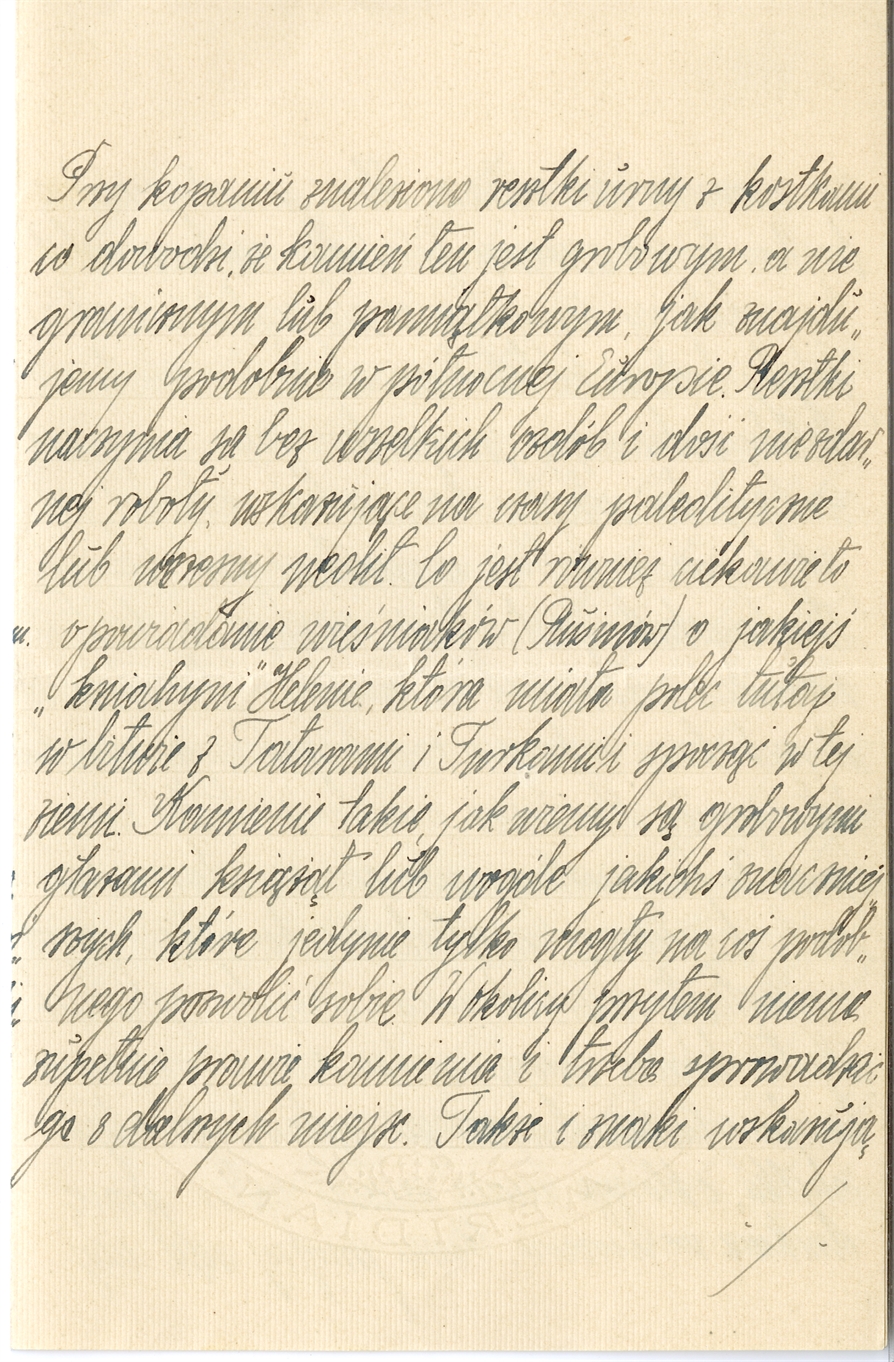 Przy kopaniu znaleziono resztki urny z kostkami
co dowodzi, że kamień ten jest grobowym, a nie
granicznym lub pamiątkowym, jak znajdu„
jemy podobnie w północnej Europie. Resztki
naczynia są bez wszelkich ozdób i dość niezdar„
nej roboty, wskazujące na czasy paleolityczne
lub wczesny neolit. Co jest również ciekawe to
opowiadanie wieśniaków (Rusinów) o jakiejś
„kniahyni" Helenie, która miała polec tutaj
w bitwie z Tatarami i Turkami i spocząć w tej
ziemi. Kamienie takie, jak wiemy są grobowymi
głazami książąt lub wogóle jakichś znaczniej„
szych, które jedynie tylko mogły na coś podob„
nego pozwolić sobie. W okolicy przytem niema
zupełnie prawie kamienia i trzeba sprowadzać
go z dalszych miejsc. Także i znaki wskazują
MERIDIAN